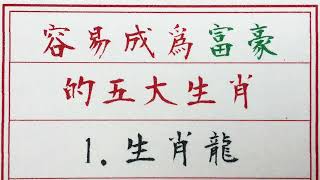 容易成為富豪
的五大生肖
1.生肖龍